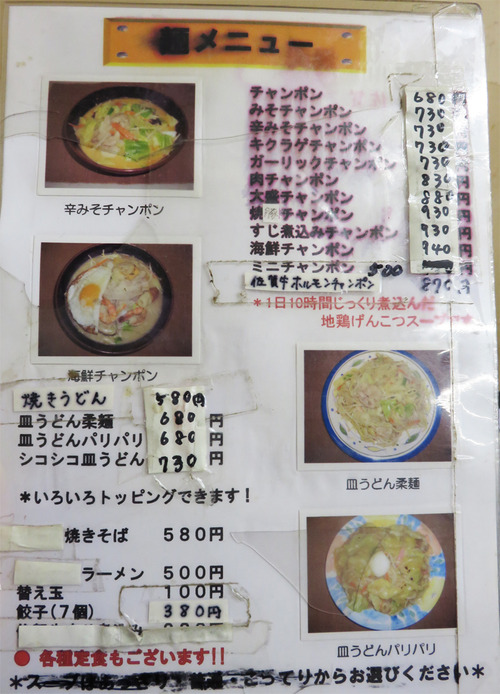 麺メニュー
チャンポン 680円
みそチャンポン 730円
辛みそチャンポン 730円
キクラゲチャンポン 730円
ガーリックチャンポン 730円
肉チャンポン 830円
大盛チャンポン 880円
焼豚チャンポン 930円
すじ煮込みチャンポン 930円
海鮮チャンポン 940円
ミニチャンポン 500
佐賀牛ホルモンチャンポン 870円
*1日10時間じっくり煮込んだ
地鶏げんこつスープです
辛みそチャンポン
海鮮チャンポン
焼きうどん 580円
皿うどん柔麺 680円
皿うどんパリパリ 680円
シコシコ皿うどん 730円
*いろいろトッピングできます!
焼きそば 580円
ラーメン 500円
替え玉 100円
餃子(7個) 380円
●各種定食もございます!!
皿うどん柔麺
皿うどんパリパリ
*スープはあっさり・こってりからお選びください*